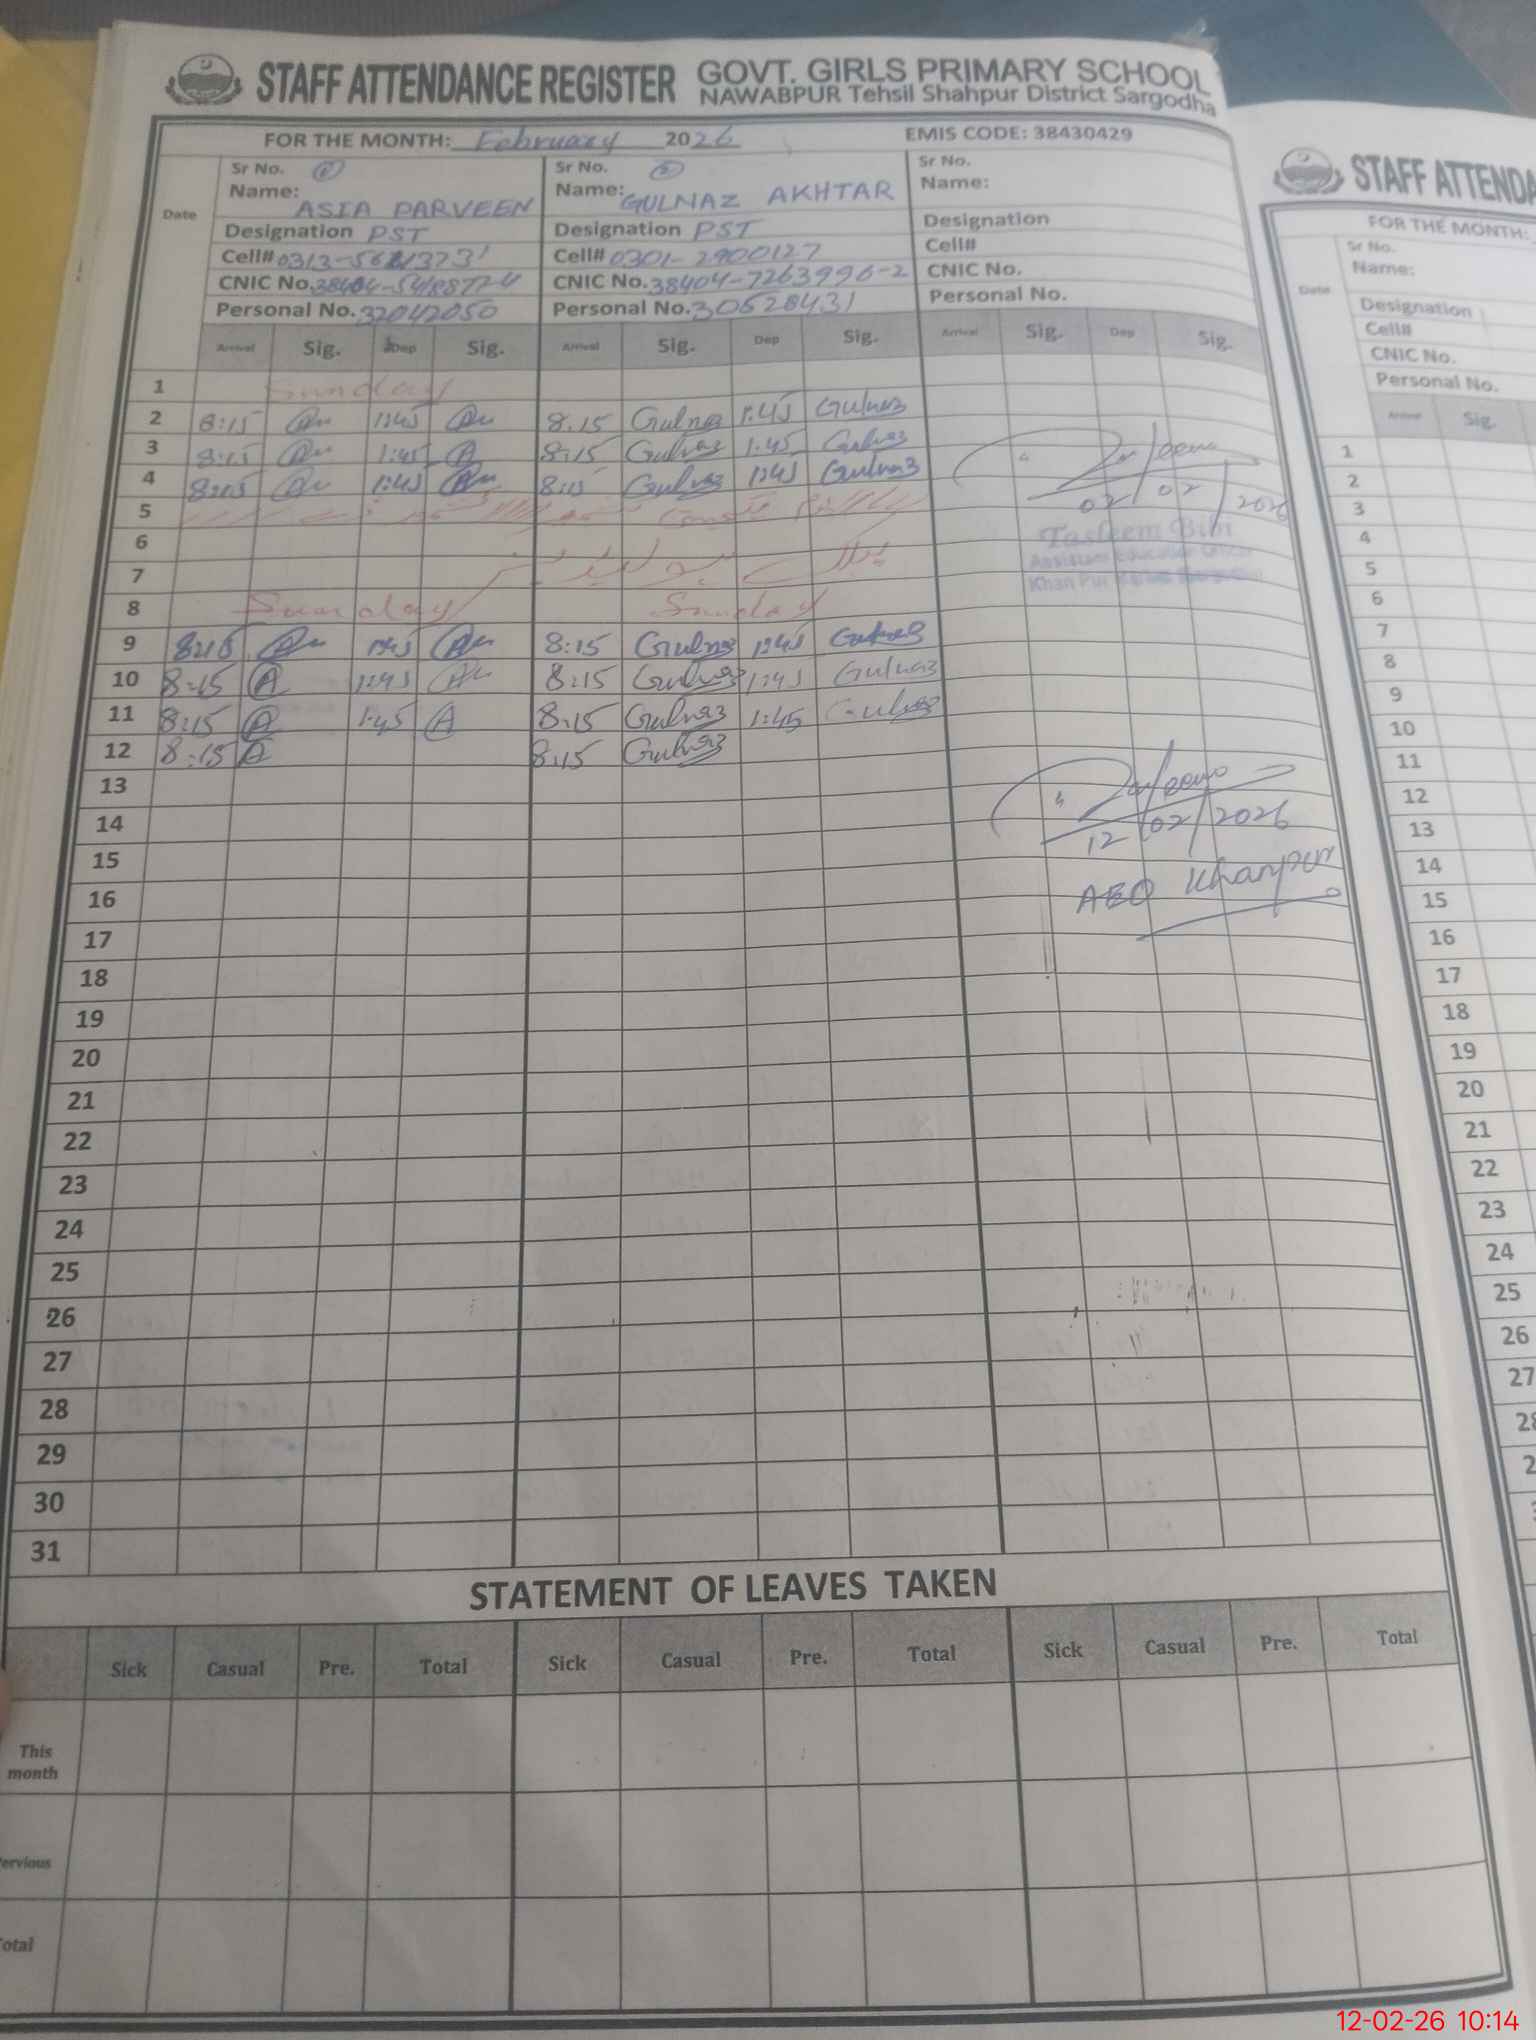 STAFF ATTENDANCE REGISTER GOVT. GIRLS PRIMARY SCHOOL
NAWABPUR Tehsil Shahpur District Sargodha
FOR THE MONTH: February 2026 EMIS CODE: 38430429
Date
Sr No. Sr No. Sr No.
Name: ASIA PARVEEN Name: GULNAZ AKHTAR Name:
Designation PST Designation PST Designation
Cell# Cell# 0301-2900127 Cell#
CNIC No. CNIC No. 38404-7263996-2 CNIC No.
Personal No. 32042050 Personal No. 30528431 Personal No.
Arrival Sig. Dep Sig. Arrival Sig. Dep Sig. Arrival Sig. Dep Sig.
1 Sunday
2 8:15 1:45 8.15 Gulnaz 1:45 Gulnaz
3 8:15 1:45 8:15 Gulnaz 1:45 Gulnaz
4 8:15 1:45 8:15 Gulnaz 1:45 Gulnaz
02/02/2026
5
Tasleem Bibi
Assistant Education Officer
Khan Pur
6
7
8 Sunday Sunday
9 8:15 1:45 8:15 Gulnaz 1:45 Gulnaz
10 8:15 A 1:45 8:15 Gulnaz 1:45 Gulnaz
11 8:15 A 1:45 A 8:15 Gulnaz 1:45 Gulnaz
12 8:15 A 8:15 Gulnaz
13
14
12/02/2026
15
AEO Khanpur
16
17
18
19
20
21
22
23
24
25
26
27
28
29
30
31
STATEMENT OF LEAVES TAKEN
Sick Casual Pre. Total Sick Casual Pre. Total Sick Casual Pre. Total
This month
Pervious
Total
STAFF ATTENDA
FOR THE MONTH:
Sr No.
Name:
Date
Designation
Cell#
CNIC No.
Personal No.
Arrival Sig.
1
2
3
4
5
6
7
8
9
10
11
12
13
14
15
16
17
18
19
20
21
22
23
24
25
26
27
28
12-02-26 10:14